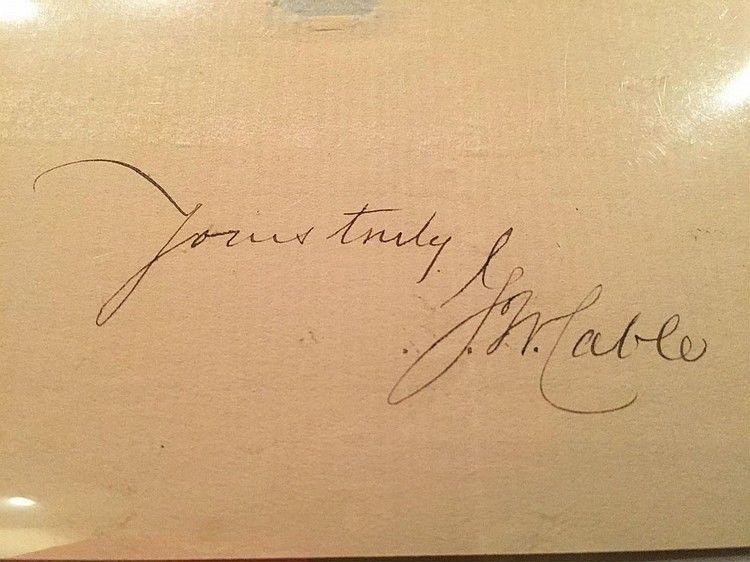 Yours truly
G.W. Cable